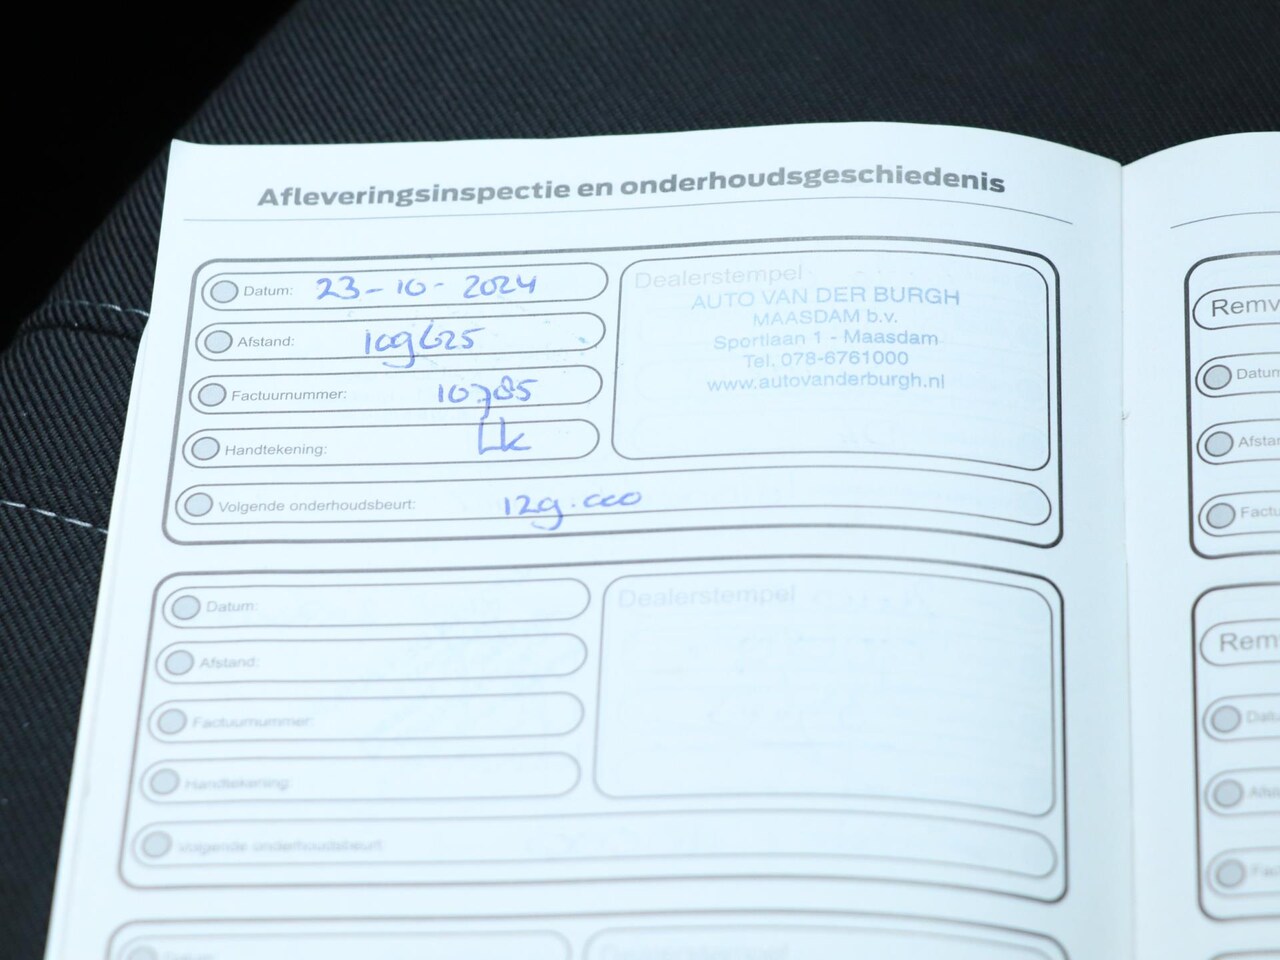 Afleveringsinspectie en onderhoudsgeschiedenis
Datum: 23-10-2024
Afstand: 109625
Factuurnummer: 10785
Handtekening: Lk
Volgende onderhoudsbeurt: 129.000
Dealerstempel
AUTO VAN DER BURGH
MAASDAM b.v.
Sportlaan 1 - Maasdam
Tel. 078-6761000
www.autovanderburgh.nl
Datum:
Afstand:
Factuurnummer:
Handtekening:
Volgende onderhoudsbeurt:
Dealerstempel
Datum:
Dealerstempel
Remv
Datum
Afstan
Factu
Rem
Datu
Afst
Fact